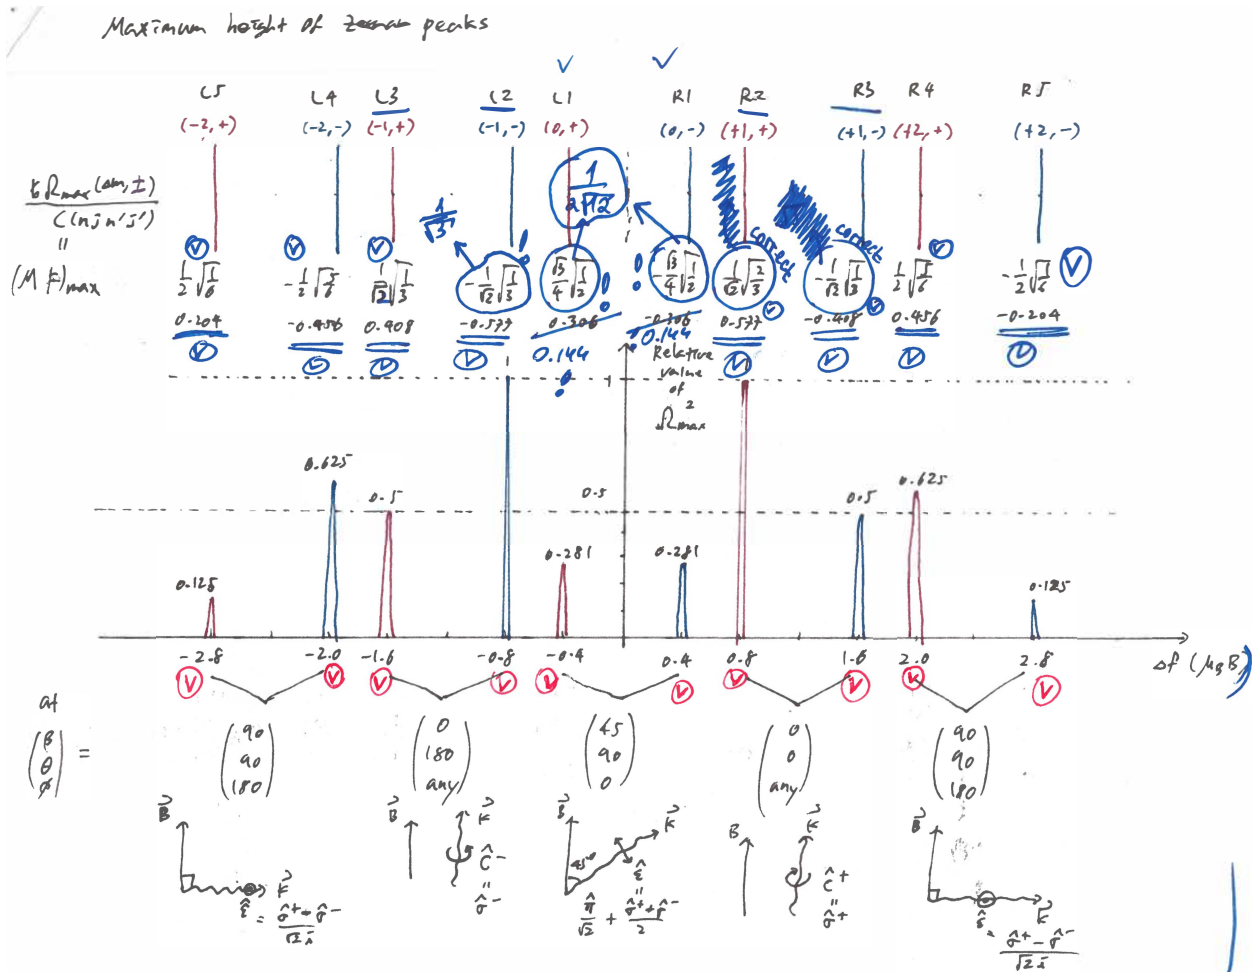 Maximum height of peaks
L5 L4 L3 L2 L1 R1 R2 R3 R4 R5
(-2,+) (-2,-) (-1,+) (-1,-) (0,+) (0,-) (+1,+) (+1,-) (+2,+) (+2,-)
ħΩmax(Δm,±) / C(nj n'j')
"
(M F)max
1/√3
1/(2√12)
correct
correct
1/2 √(1/6) -1/2 √(5/6) 1/√2 √(1/3) -1/√2 √(1/3) √3/4 √(1/2) -√3/4 √(1/2) 1/√2 √(2/3) -1/√2 √(1/3) 1/2 √(5/6) -1/2 √(1/6)
0.204 -0.456 0.408 -0.577 0.306 -0.306 0.577 -0.408 0.456 -0.204
0.144 ! 0.144
Relative value of Ω²max
1 1
0.625 0.625
0.5 0.5 0.5
0.281 0.281
0.125 0.125
-2.8 -2.0 -1.6 -0.8 -0.4 0.4 0.8 1.6 2.0 2.8 Δf (μBB)
at
(β θ φ) = (90 90 180) (0 180 any) (45 90 0) (0 0 any) (90 90 180)
B k ε̂ = (σ̂+ - σ̂-)/(√2 i)
B k ĉ- " σ̂-
B 45° k ε̂ " π̂/√2 + (σ̂+ + σ̂-)/2
B k ĉ+ " σ̂+
B k ε̂ = (σ̂+ - σ̂-)/(√2 i)